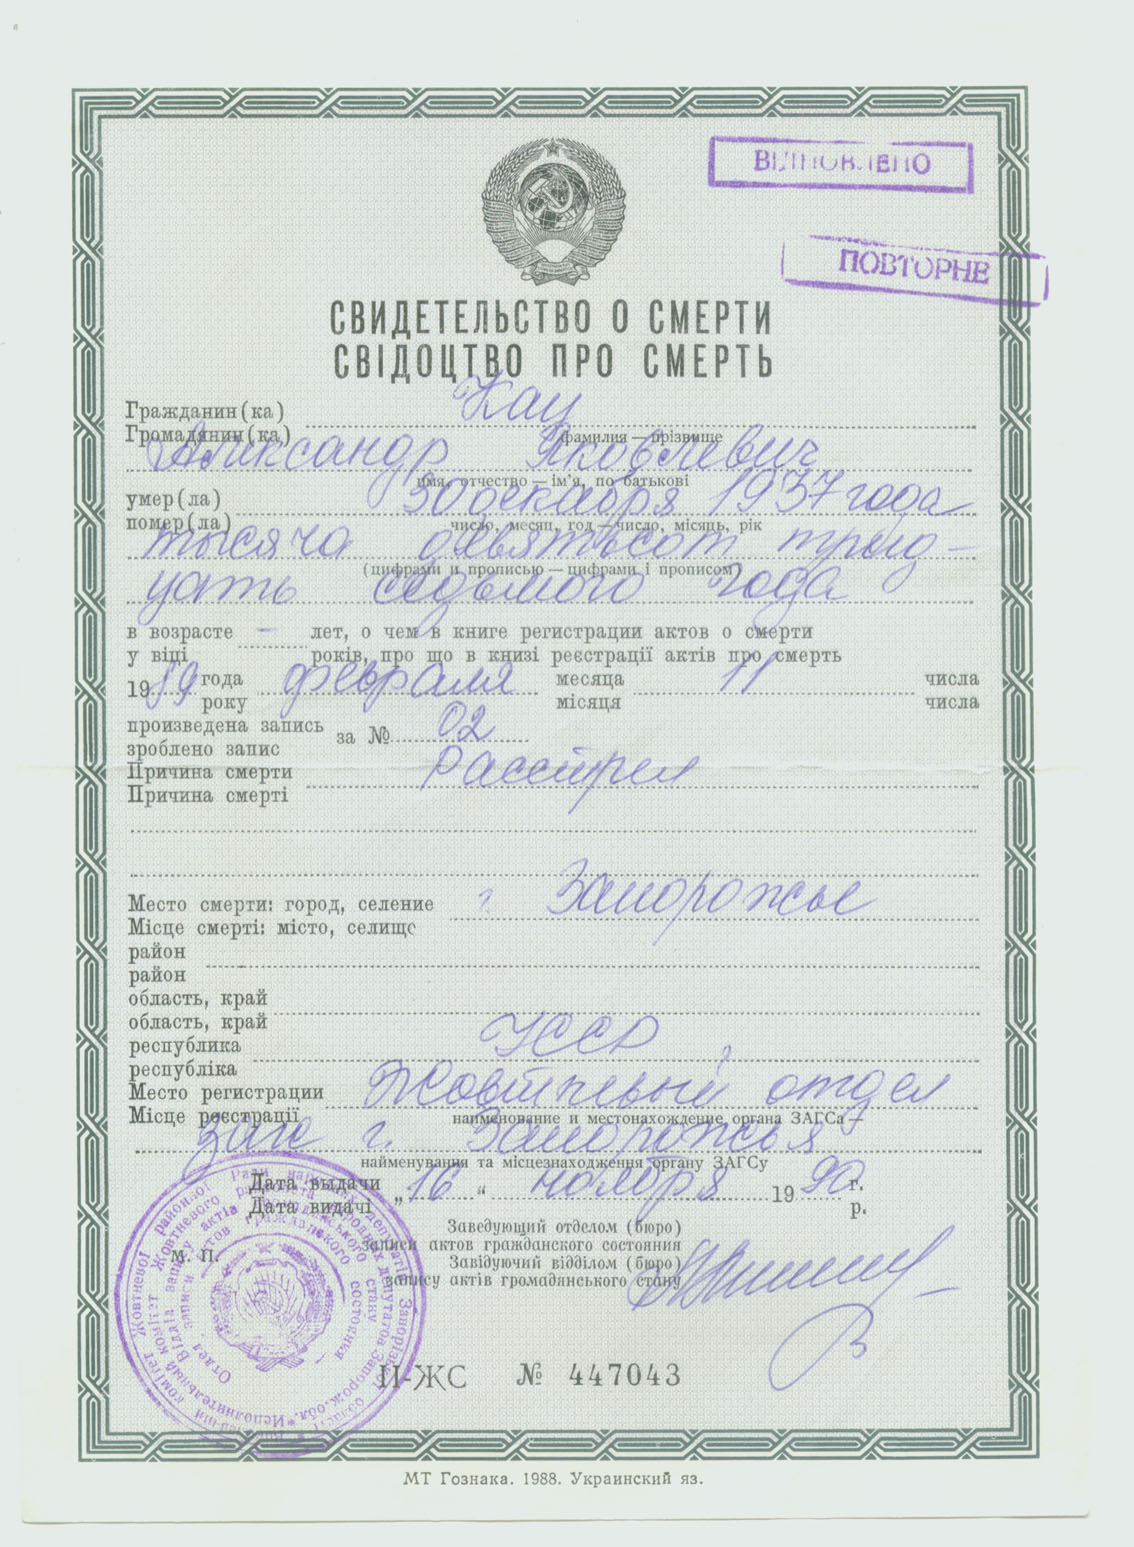 ВІДНОВЛЕНО
ПОВТОРНЕ
СВИДЕТЕЛЬСТВО О СМЕРТИ
СВІДОЦТВО ПРО СМЕРТЬ
Гражданин(ка) Кац
Громадянин(ка) фамилия — прізвище
Александр Яковлевич
имя, отчество — ім'я, по батькові
умер(ла) 30 декабря 1937 года
помер(ла) число, месяц, год — число, місяць, рік
тысяча девятьсот трид-
(цифрами и прописью — цифрами і прописом)
цать седьмого года
в возрасте — лет, о чем в книге регистрации актов о смерти
у віці років, про що в книзі реєстрації актів про смерть
1989 года февраля месяца 11 числа
року місяця числа
произведена запись за № 02
зроблено запис
Причина смерти Расстрел
Причина смерті
Место смерти: город, селение г. Запорожье
Місце смерті: місто, селище
район
район
область, край
область, край
республика УССР
республіка
Место регистрации Жовтневый отдел
Місце реєстрації наименование и местонахождение органа ЗАГСа —
загс г. Запорожья
найменування та місцезнаходження органу ЗАГСу
Дата выдачи „16“ ноября 1990 г.
Дата видачі р.
Заведующий отделом (бюро)
записи актов гражданского состояния
М. П.
Завідуючий відділом (бюро)
запису актів громадянського стану
II-ЖС № 447043
МТ Гознака. 1988. Украинский яз.